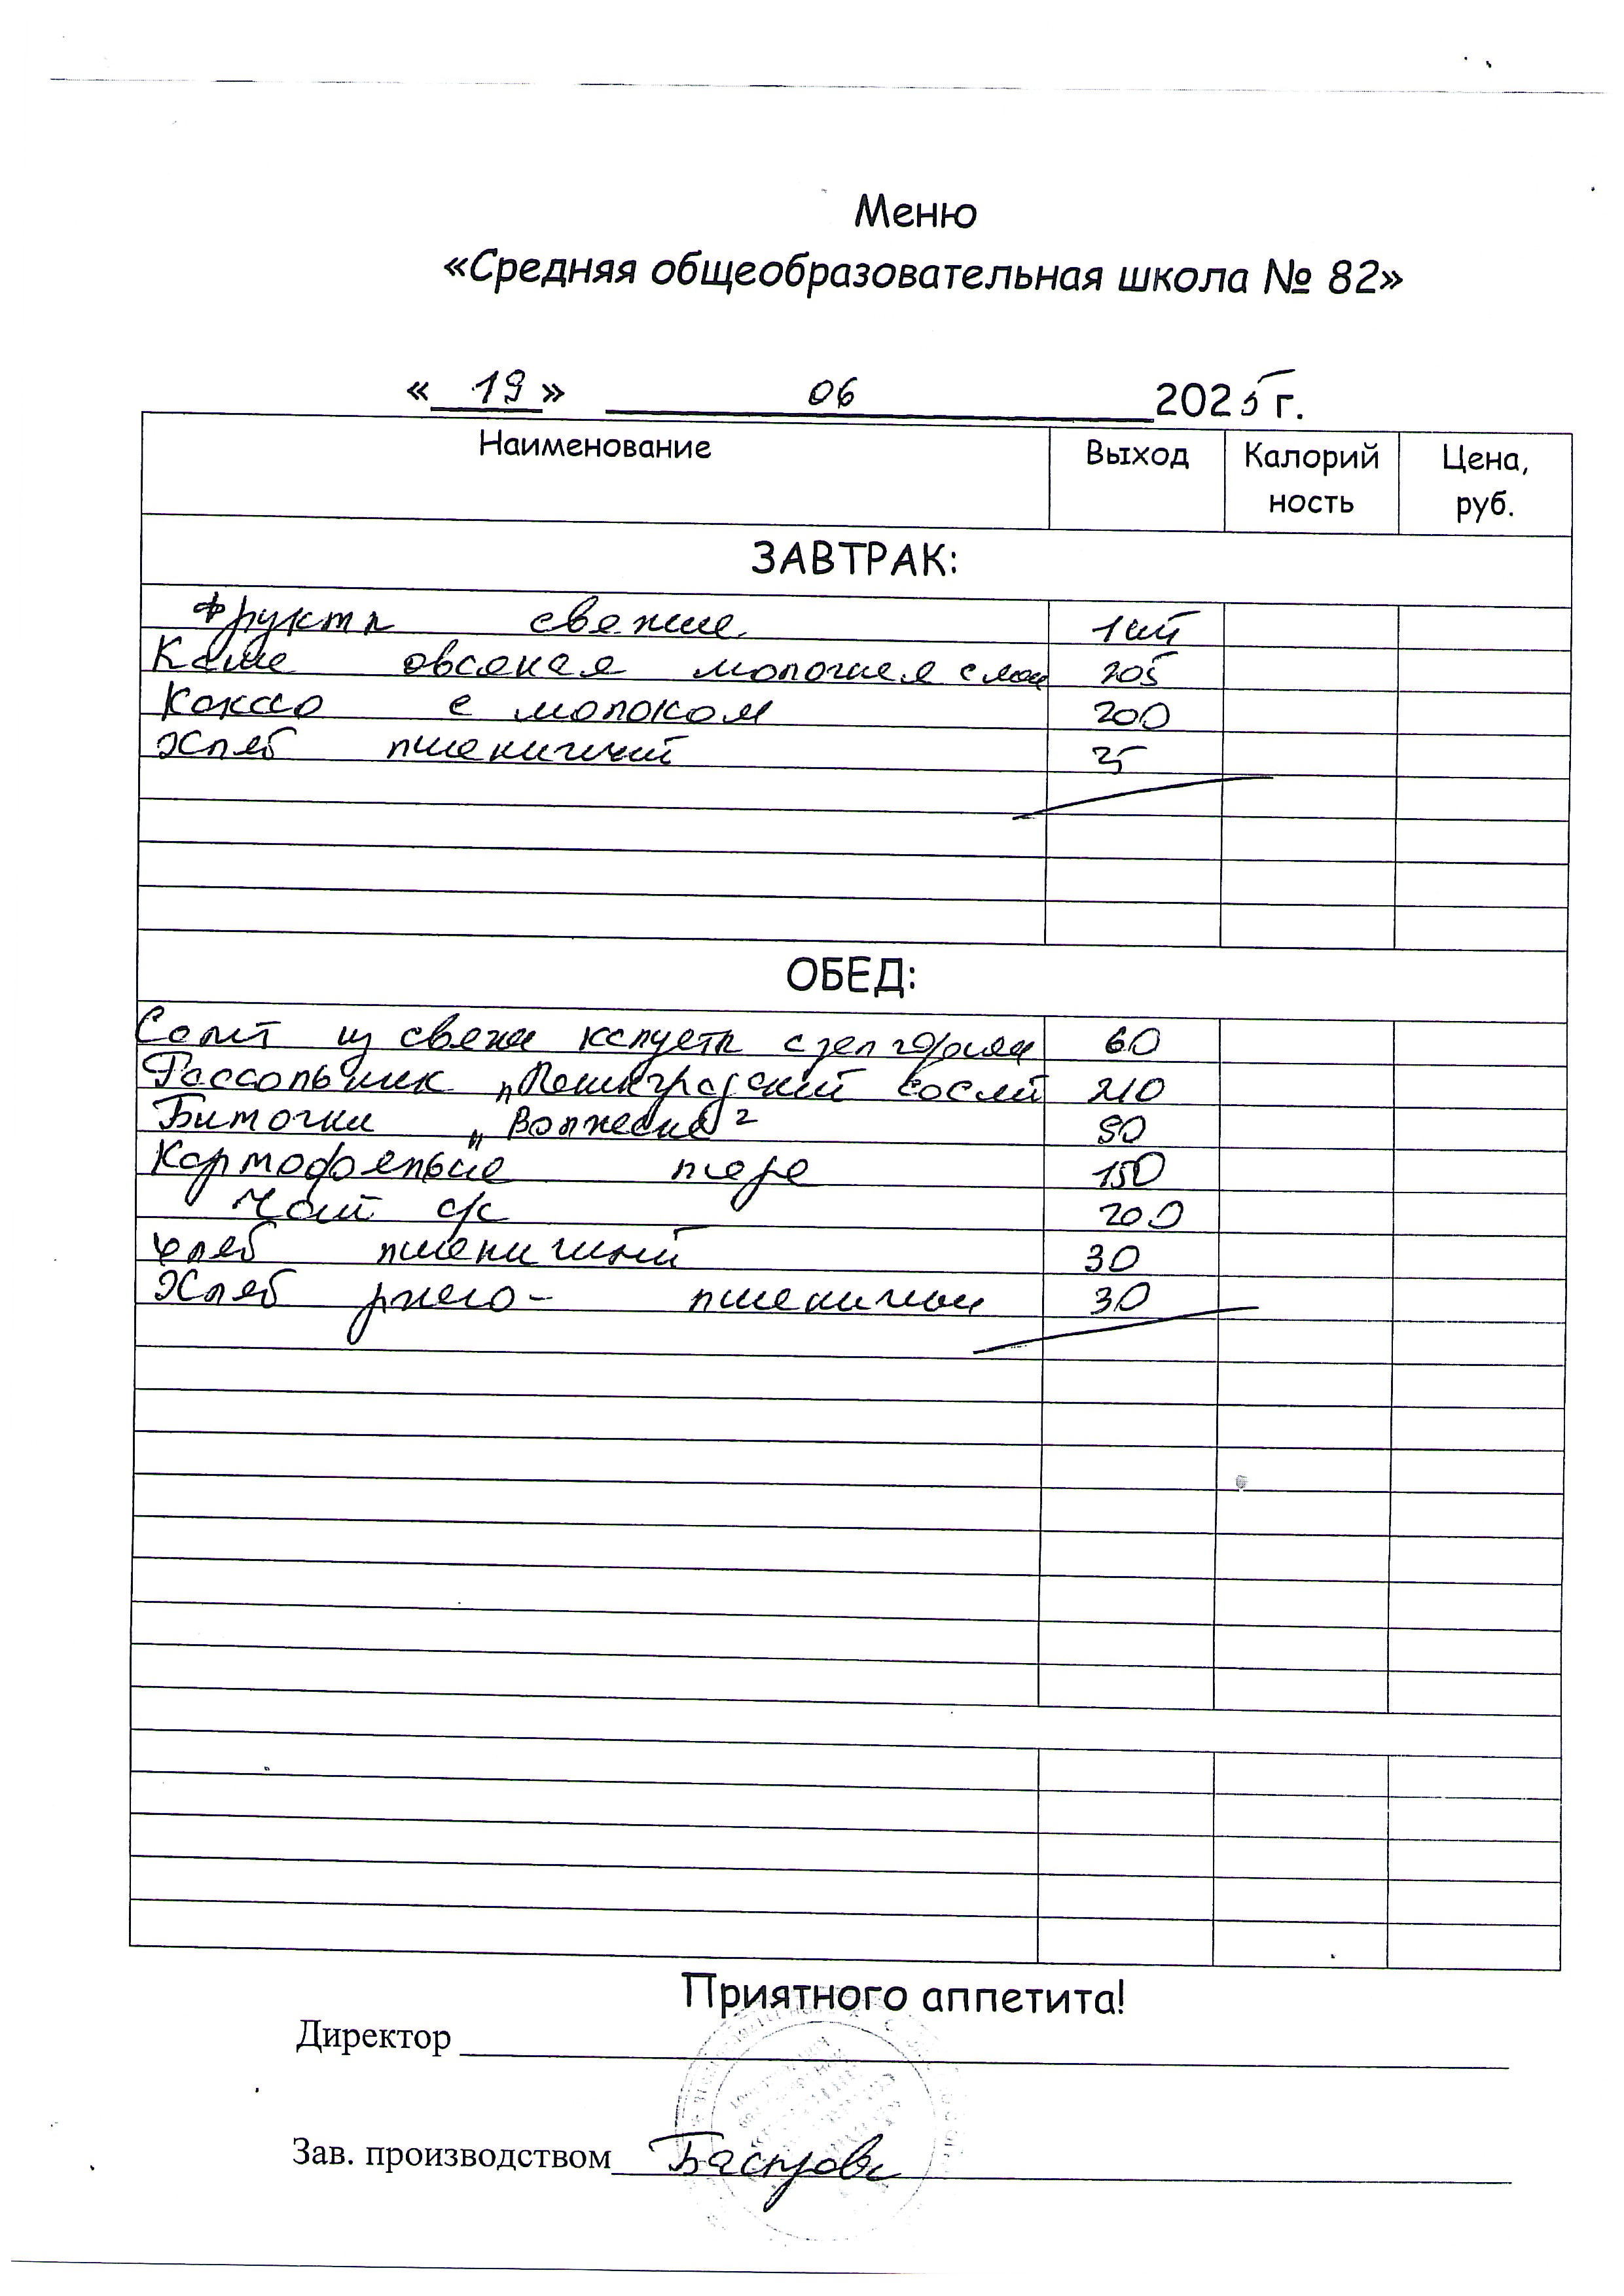 Меню
«Средняя общеобразовательная школа № 82»
« 19 » 06 2025 г.
Наименование Выход Калорий ность Цена, руб.
ЗАВТРАК:
Фрукты свежие 1 шт
Каша овсяная молочная с мас 205
Какао с молоком 200
Хлеб пшеничный
ОБЕД:
Салат из свежи капусты с зел горошком 60
Рассольник „Ленинградский со см 210
Биточки „Волжские"
Картофельное пюре 150
Чай с/с 200
Хлеб пшеничный 30
Хлеб ржано- пшеничный 30
Приятного аппетита!
Директор
Зав. производством